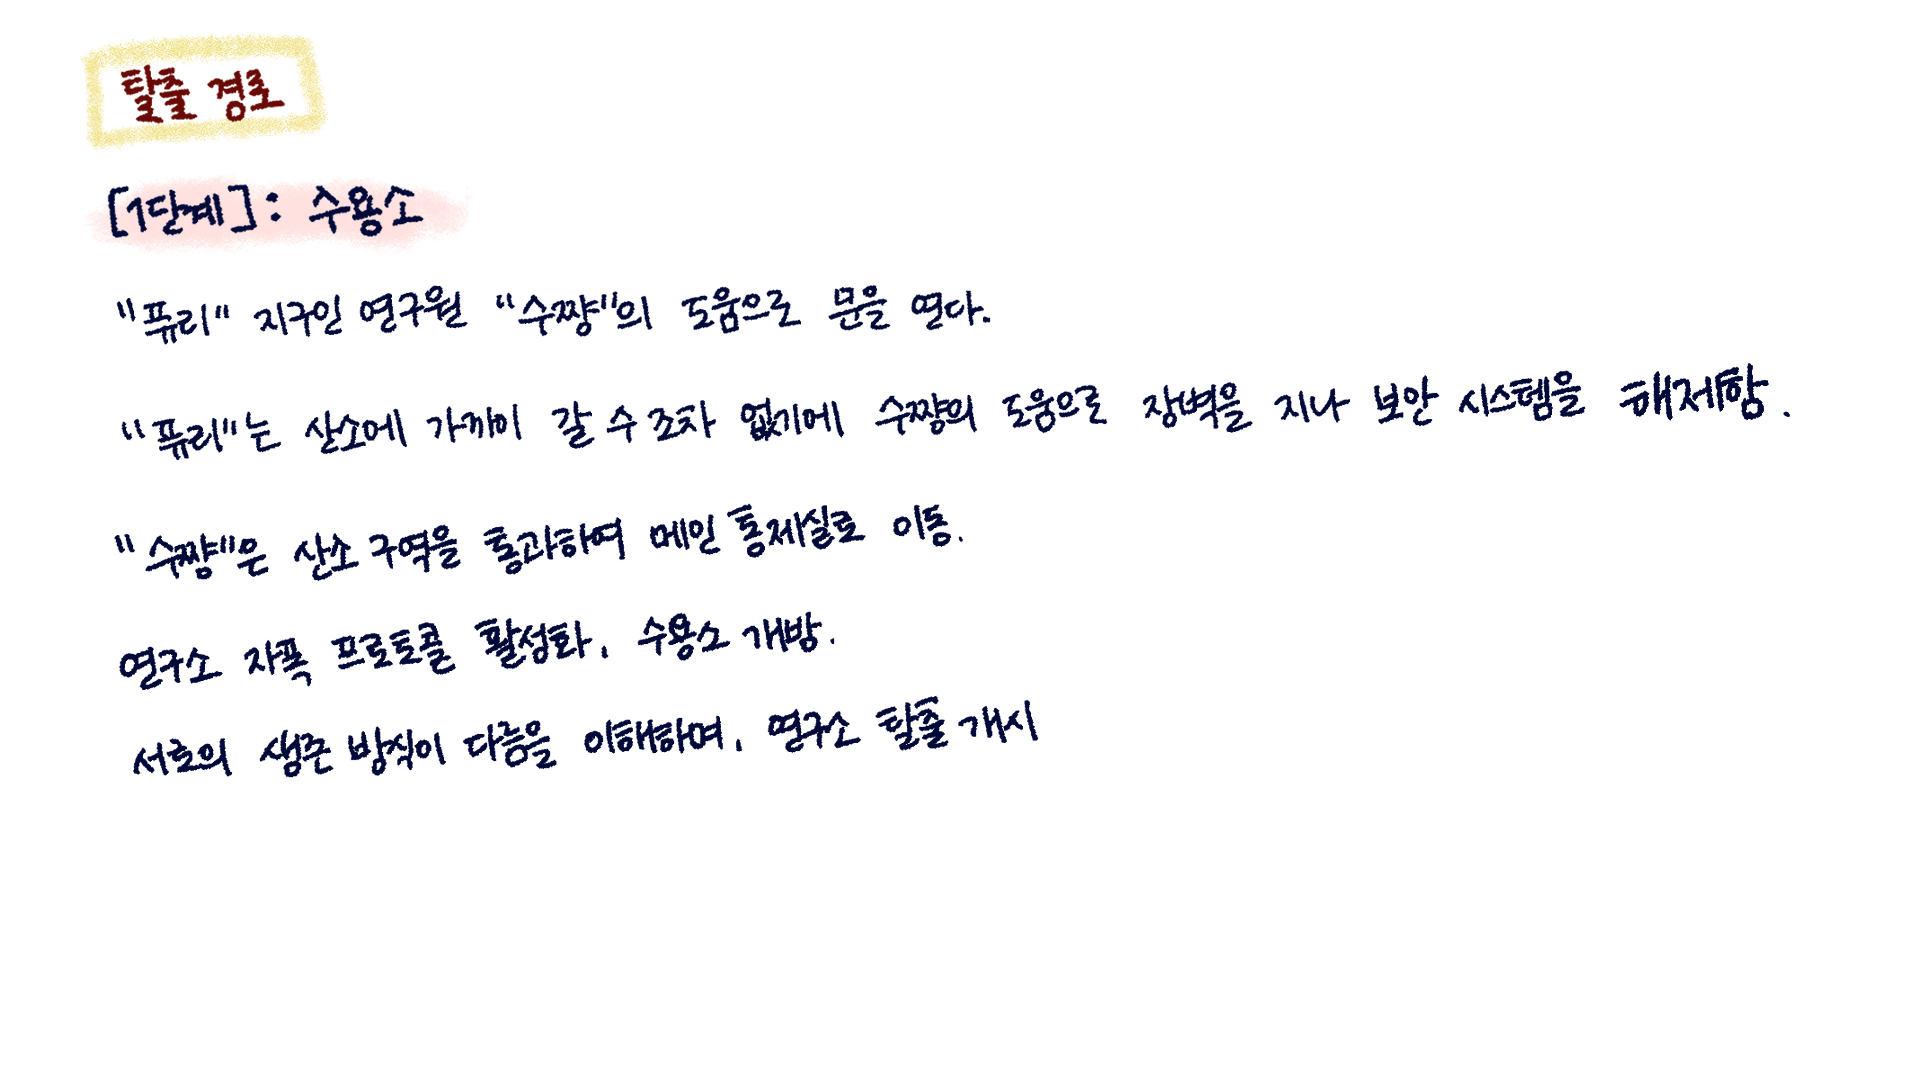 탈출 경로
[1단계] : 수용소
"퓨리" 지구인 연구원 "수쨩"의 도움으로 문을 연다.
"퓨리"는 산소에 가까이 갈 수 조차 없기에 수쨩의 도움으로 장벽을 지나 보안 시스템을 해제함.
"수쨩"은 산소 구역을 통과하여 메인 통제실로 이동.
연구소 자폭 프로토콜 활성화, 수용소 개방.
서로의 생존 방식이 다름을 이해하며, 연구소 탈출 개시